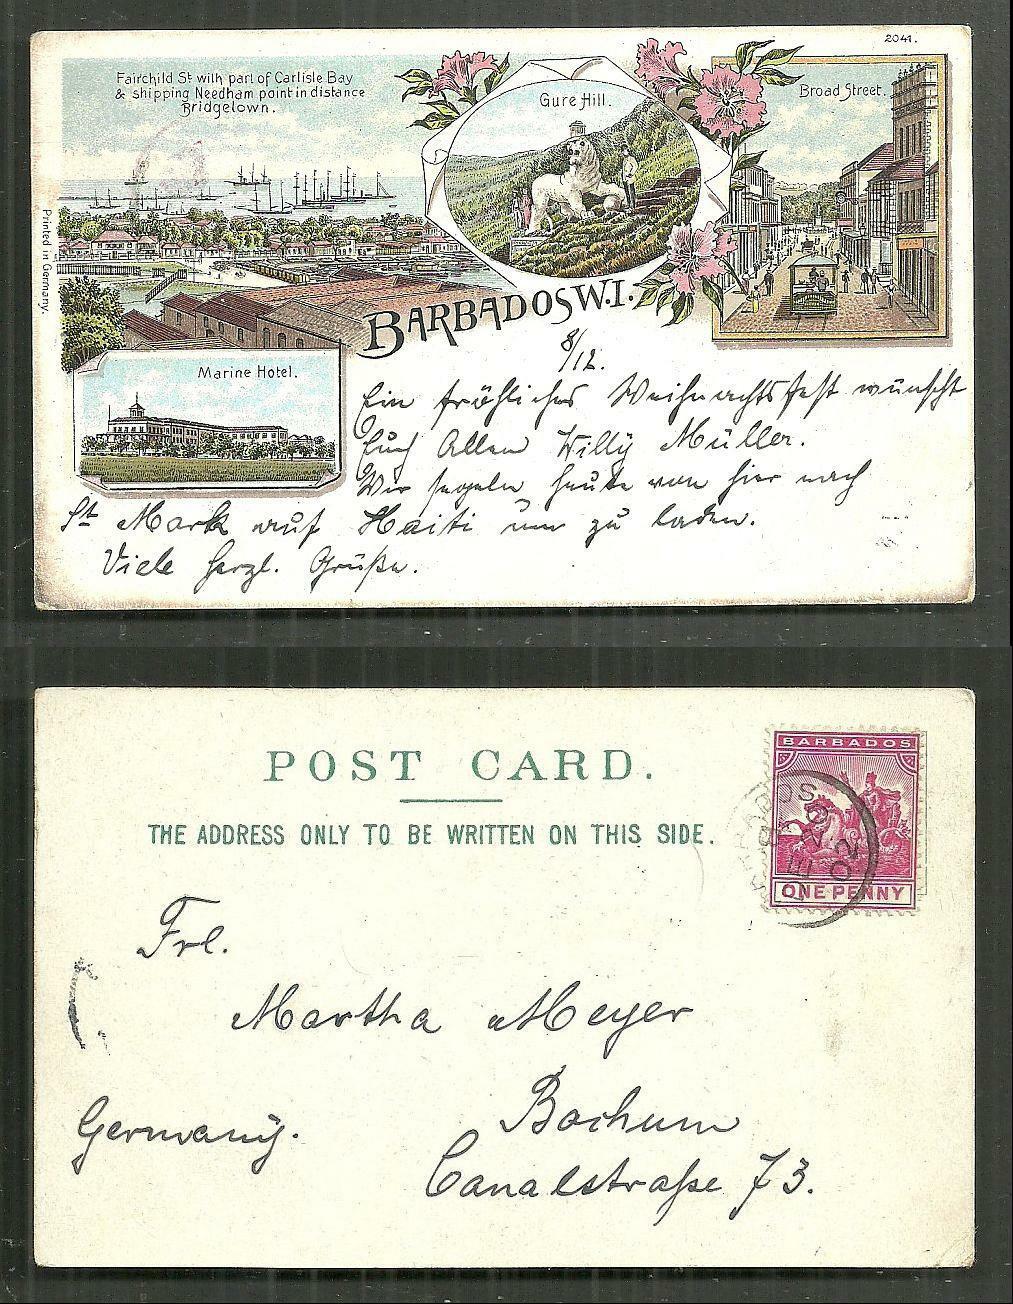 2041.
Fairchild St with part of Carlisle Bay
& shipping Needham point in distance
Bridgetown.
Gure Hill.
Broad Street.
Printed in Germany.
BARBADOS W.I.
Marine Hotel.
8/12.
Ein fröhliches Weihnachtsfest wünscht
Euch Allen Willy Müller.
Wir segeln heute von hier nach
St Mark auf Haiti um zu laden.
Viele herzl. Grüße.
POST CARD.
THE ADDRESS ONLY TO BE WRITTEN ON THIS SIDE.
BARBADOS
ONE PENNY
BARBADOS
Frl.
Martha Meyer
Bochum
Germany.
Canalstraße 73.